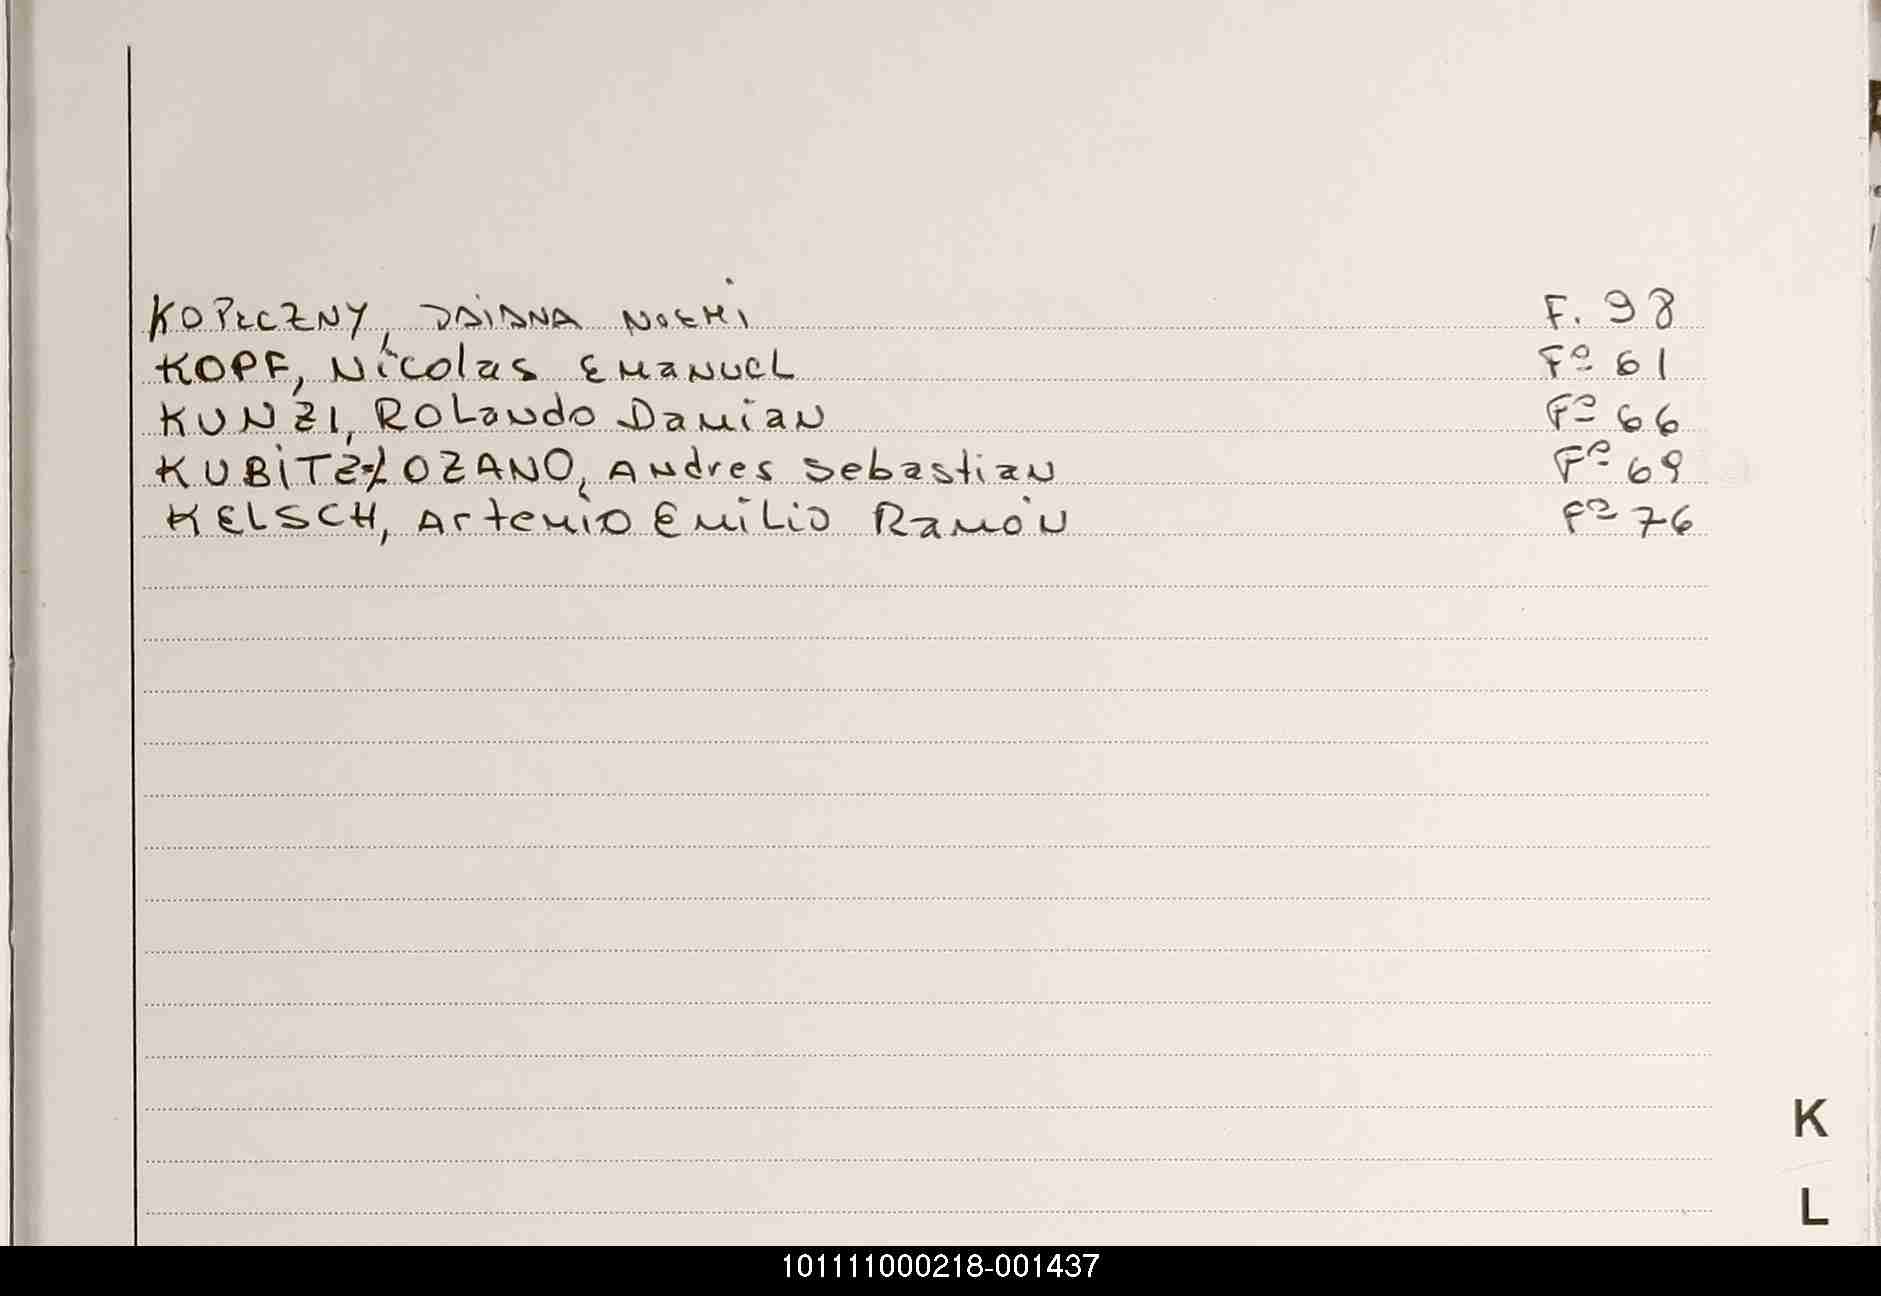 KOPECZNY, DAIANA NOEMI F. 98
KOPF, Nicolas EMANUEL Fº 61
KUNZI, ROLando Damian Fº 66
KUBITZ-LOZANO, Andres Sebastian Fº 69
KELSCH, Artemio Emilio Ramón Fº 76
K
L
101111000218-001437